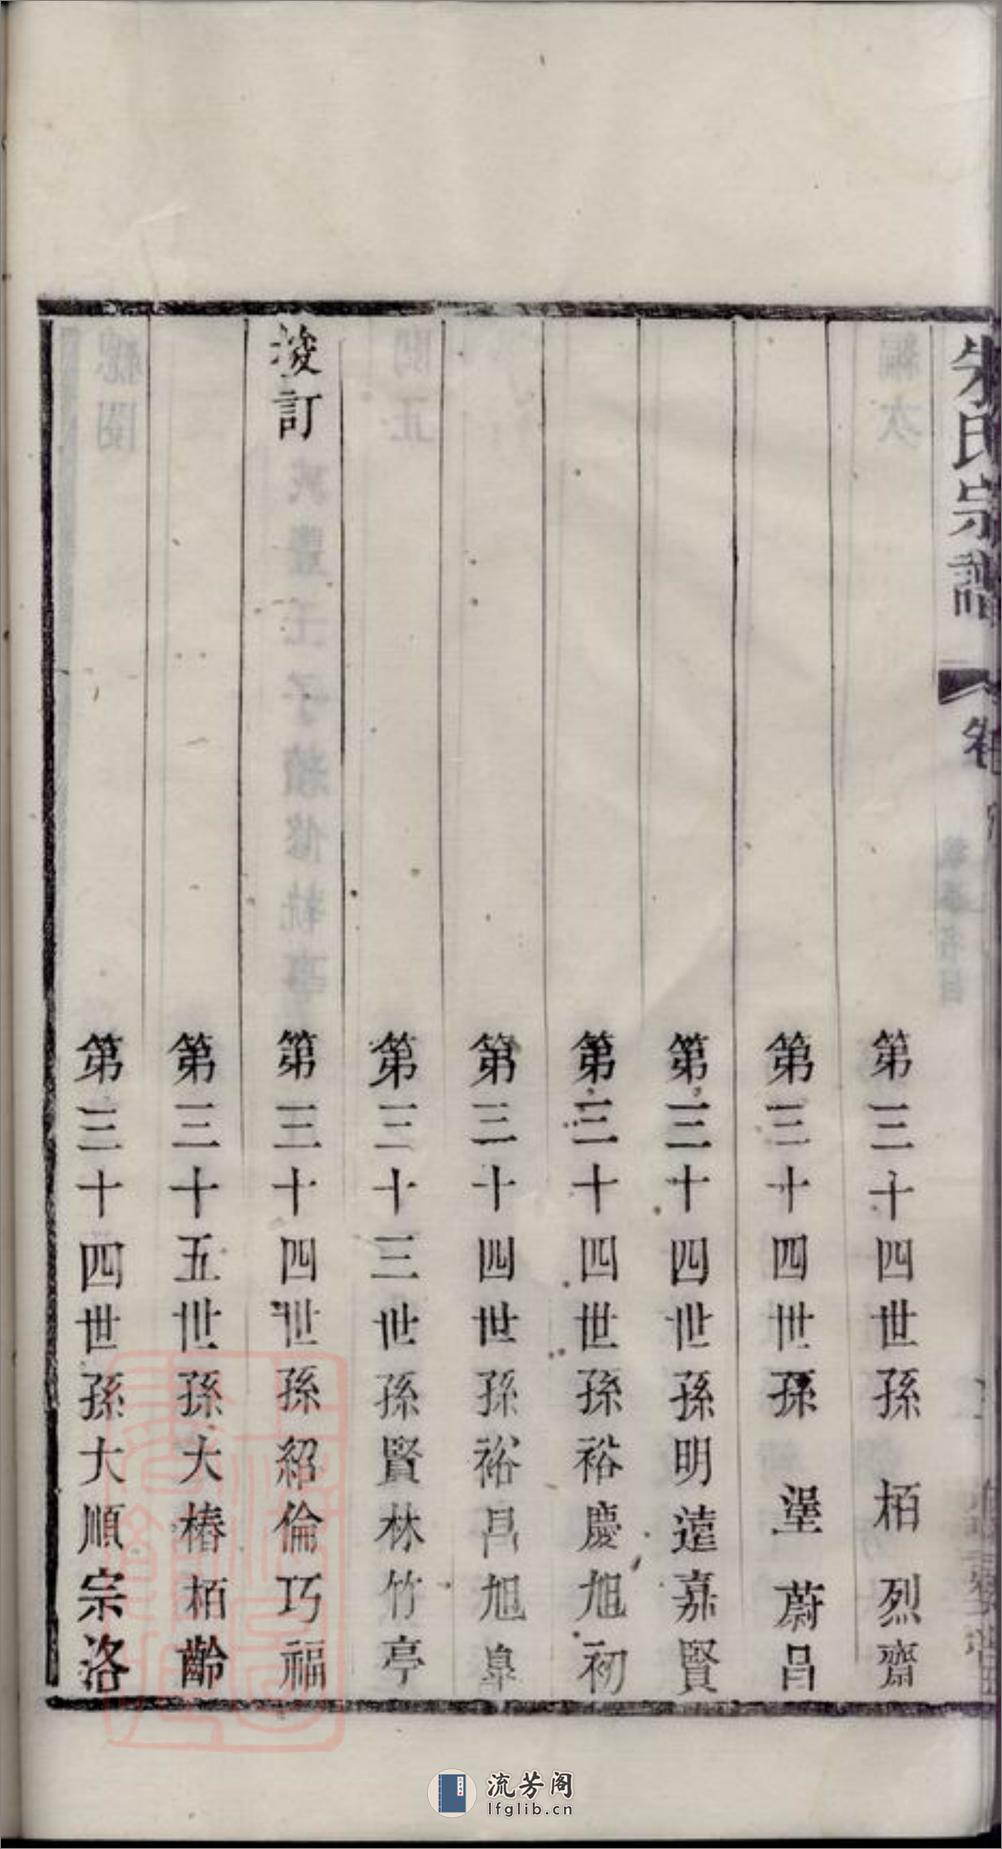 朱氏宗譜
卷
第三十四世孫 栢 烈齋
第三十四世孫 蔚昌
第三十四世孫明遠嘉賢
第三十四世孫裕慶旭初
第三十四世孫裕昌旭臯
第三十三世孫賢林竹亭
訂 第三十四世孫紹倫巧福
第三十五世孫大椿栢齡
第三十四世孫大順宗洛
流芳阁
lfglib.cn